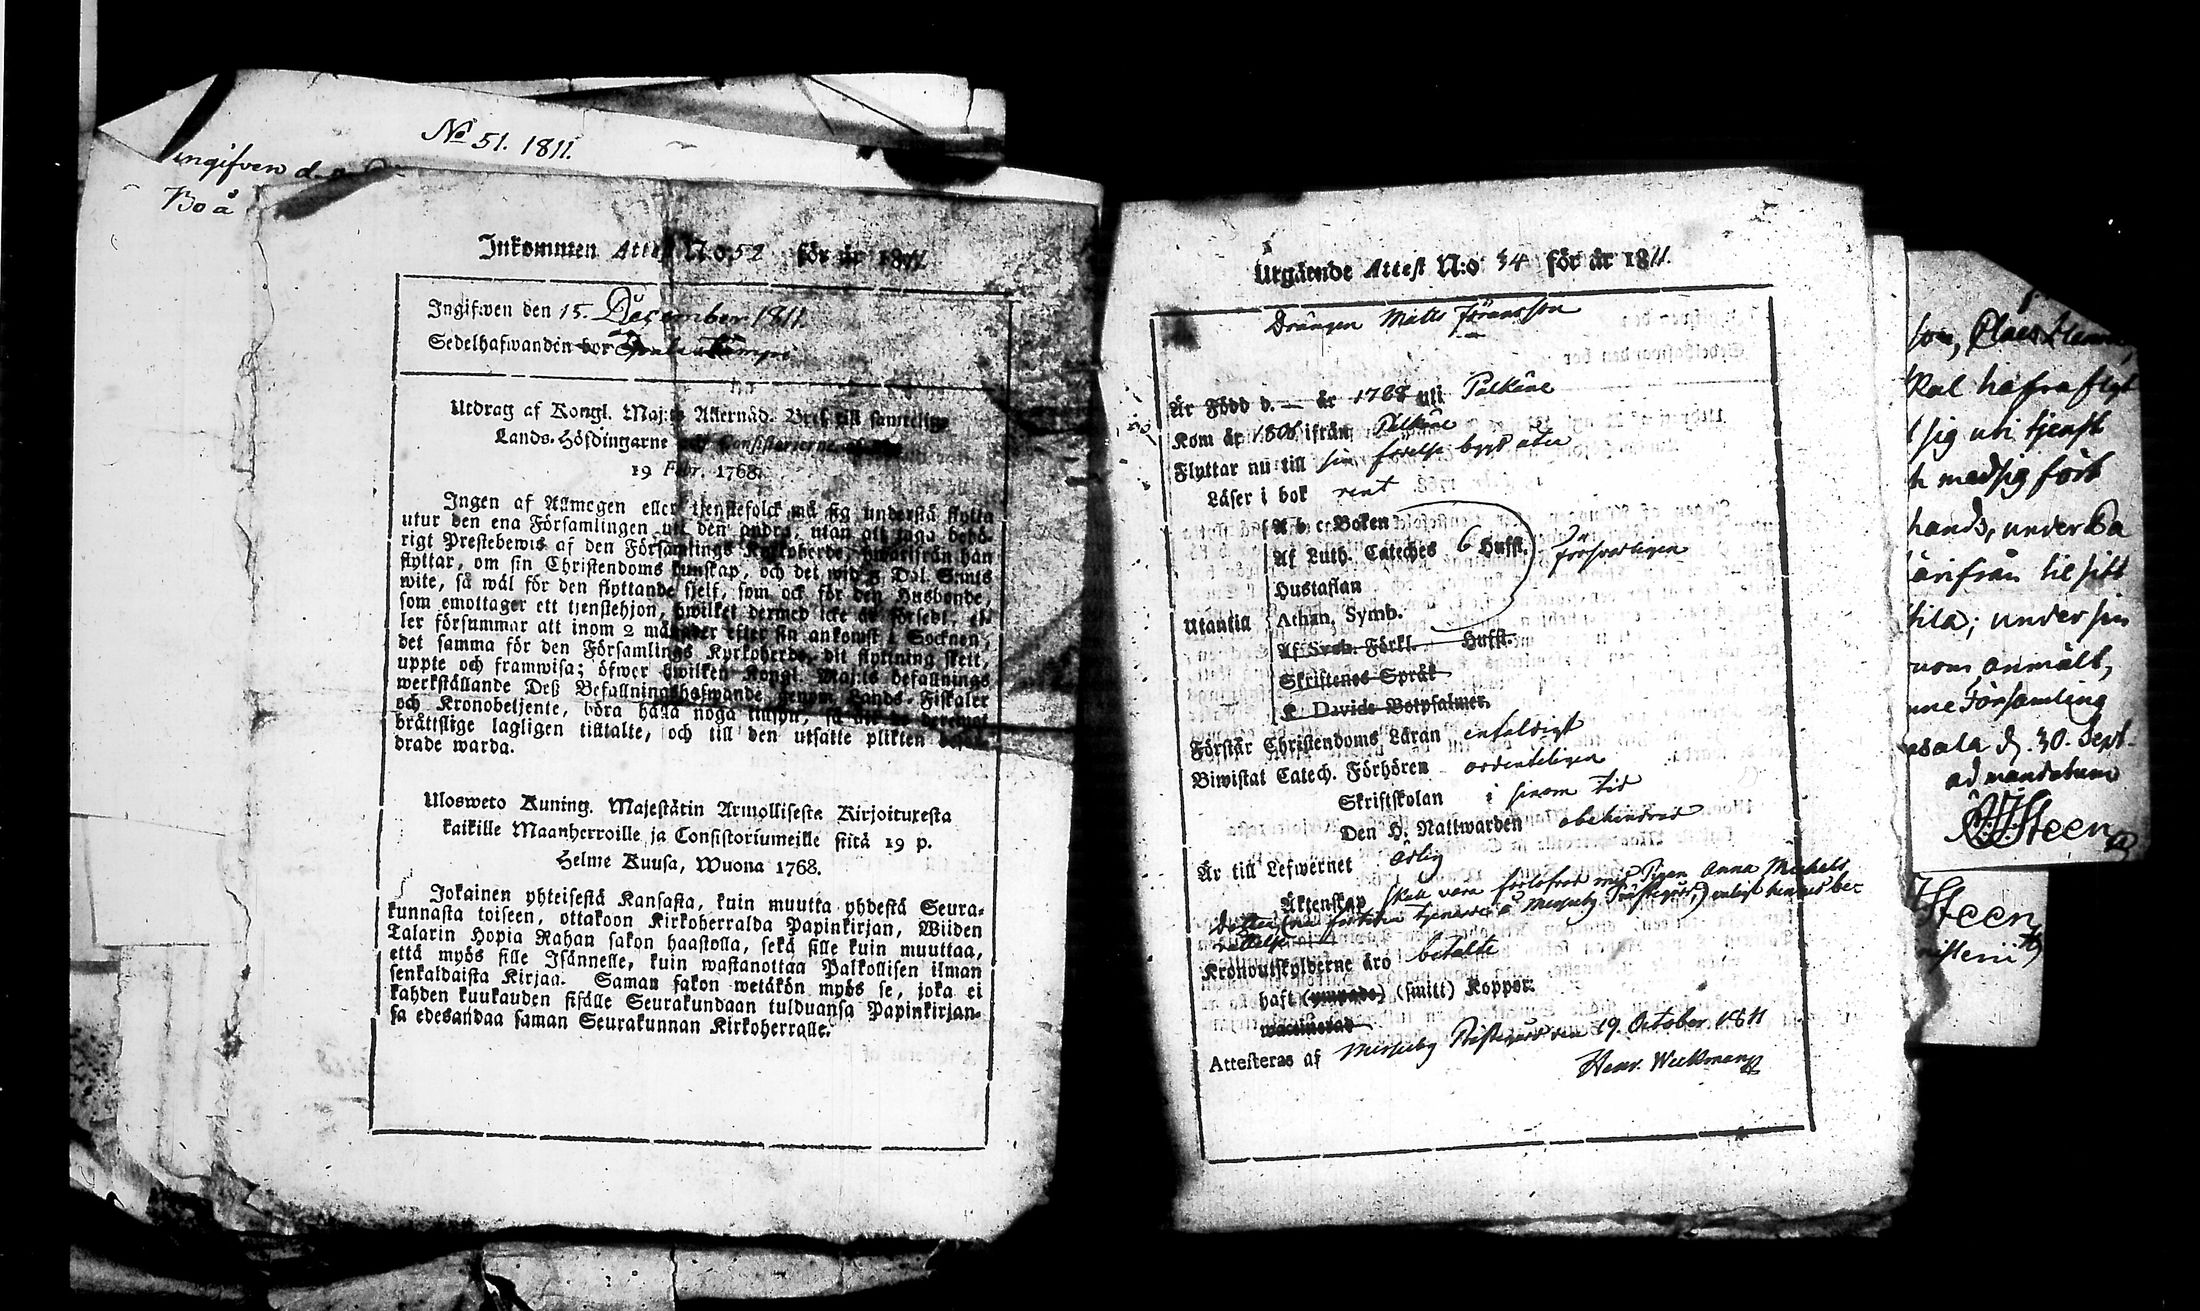 No 51. 1811.
ingifven d.
Bo å
Inkommen Attest N:o 52 för år 1811
Ingifwen den 15. December 1811.
Sedelhafwanden bor
Utdrag af Kongl. Maj:ts Allernåd. Bref till samtelige
Lands-Höfdingarne och Consistorierne
19 Febr. 1768.
Ingen af Allmogen eller tjenstefolck må sig understå flytta
utur den ena Församlingen uti den andra, utan att taga behö-
rigt Prestebewis af den Församlings Kyrkoherde, hwarifrån han
flyttar, om sin Christendoms kunskap, och det wid 5 Dal. S:mts
wite, så wäl för den flyttande sjelf, som ock för den Husbonde,
som emottager ett tjenstehjon, hwilket dermed icke är försedt, el-
ler försummar att inom 2 månader efter sin ankomst i Socknen,
det samma för den Församlings Kyrkoherde, dit flyttning skett,
uppte och framwisa; öfwer hwilken Kongl. Maj:ts befallnings
werkställande Deß Befallningshafwande genom Lands-Fiskaler
och Kronobetjente, böra hålla noga tillsyn, så att de deremot
bråttslige lagligen tilltalte, och till den utsatte plikten
drade warda.
Ulosweto Kuning. Majestätin Armollisesta Kirjoituxesta
kaikille Maanherroille ja Consistoriumeille siitä 19 p.
Helme Kuusa, Wuona 1768.
Jokainen yhteisestä Kansasta, kuin muutta yhdestä Seura-
kunnasta toiseen, ottakoon Kirkoherralda Papinkirjan, Wiiden
Talarin Hopia Rahan sakon haastolla, sekä sille kuin muuttaa,
että myös sille Isännelle, kuin wastanottaa Palkollisen ilman
senkaldaista Kirjaa. Saman sakon wetäkön myös se, joka ei
kahden kuukauden sisälle Seurakundaan tulduansa Papinkirjan-
sa edesandaa saman Seurakunnan Kirkoherralle.
Utgående Attest N:o 34 för år 1811.
Drängen Matts Göransson
Är Född d. — år 1788 uti Pälkäne
Kom år 1806 ifrån Pälkäne
Flyttar nu till sin födelse bygd åter
Läser i bok rent
A b c Boken
Af Luth. Cateches 6 Huffst.
försvarligen
Hustaflan
Utantill Athan. Symb.
Af Sveb. Förkl. Huffst.
Skriftenes Språk
K. Davids Botpsalmer.
Förstår Christendoms Läran enfaldigt
Biwistat Catech. Förhören ordenteligen
Skriftskolan i sinom tid
Den H. Nattwarden obehindrad
Är till Lefwernet ärlig
Äktenskap skall vara förlofwad med Pigan Anna Michels
dotter
Kronoutskylderne äro betalte
haft (ympade) (smitt) Koppor.
waccinerad
Attesteras af Messuby Prestgård den 19. October 1811
Henr. Weckman
son, Claes
skal hafva flyt
t sig uti tjenst
h med sig fört
hands, under
ärifrån til sitt
tila; under sin
anmält,
nne Församling
d. 30. Sept.
ad mandatum
Steen
Steen
risterii